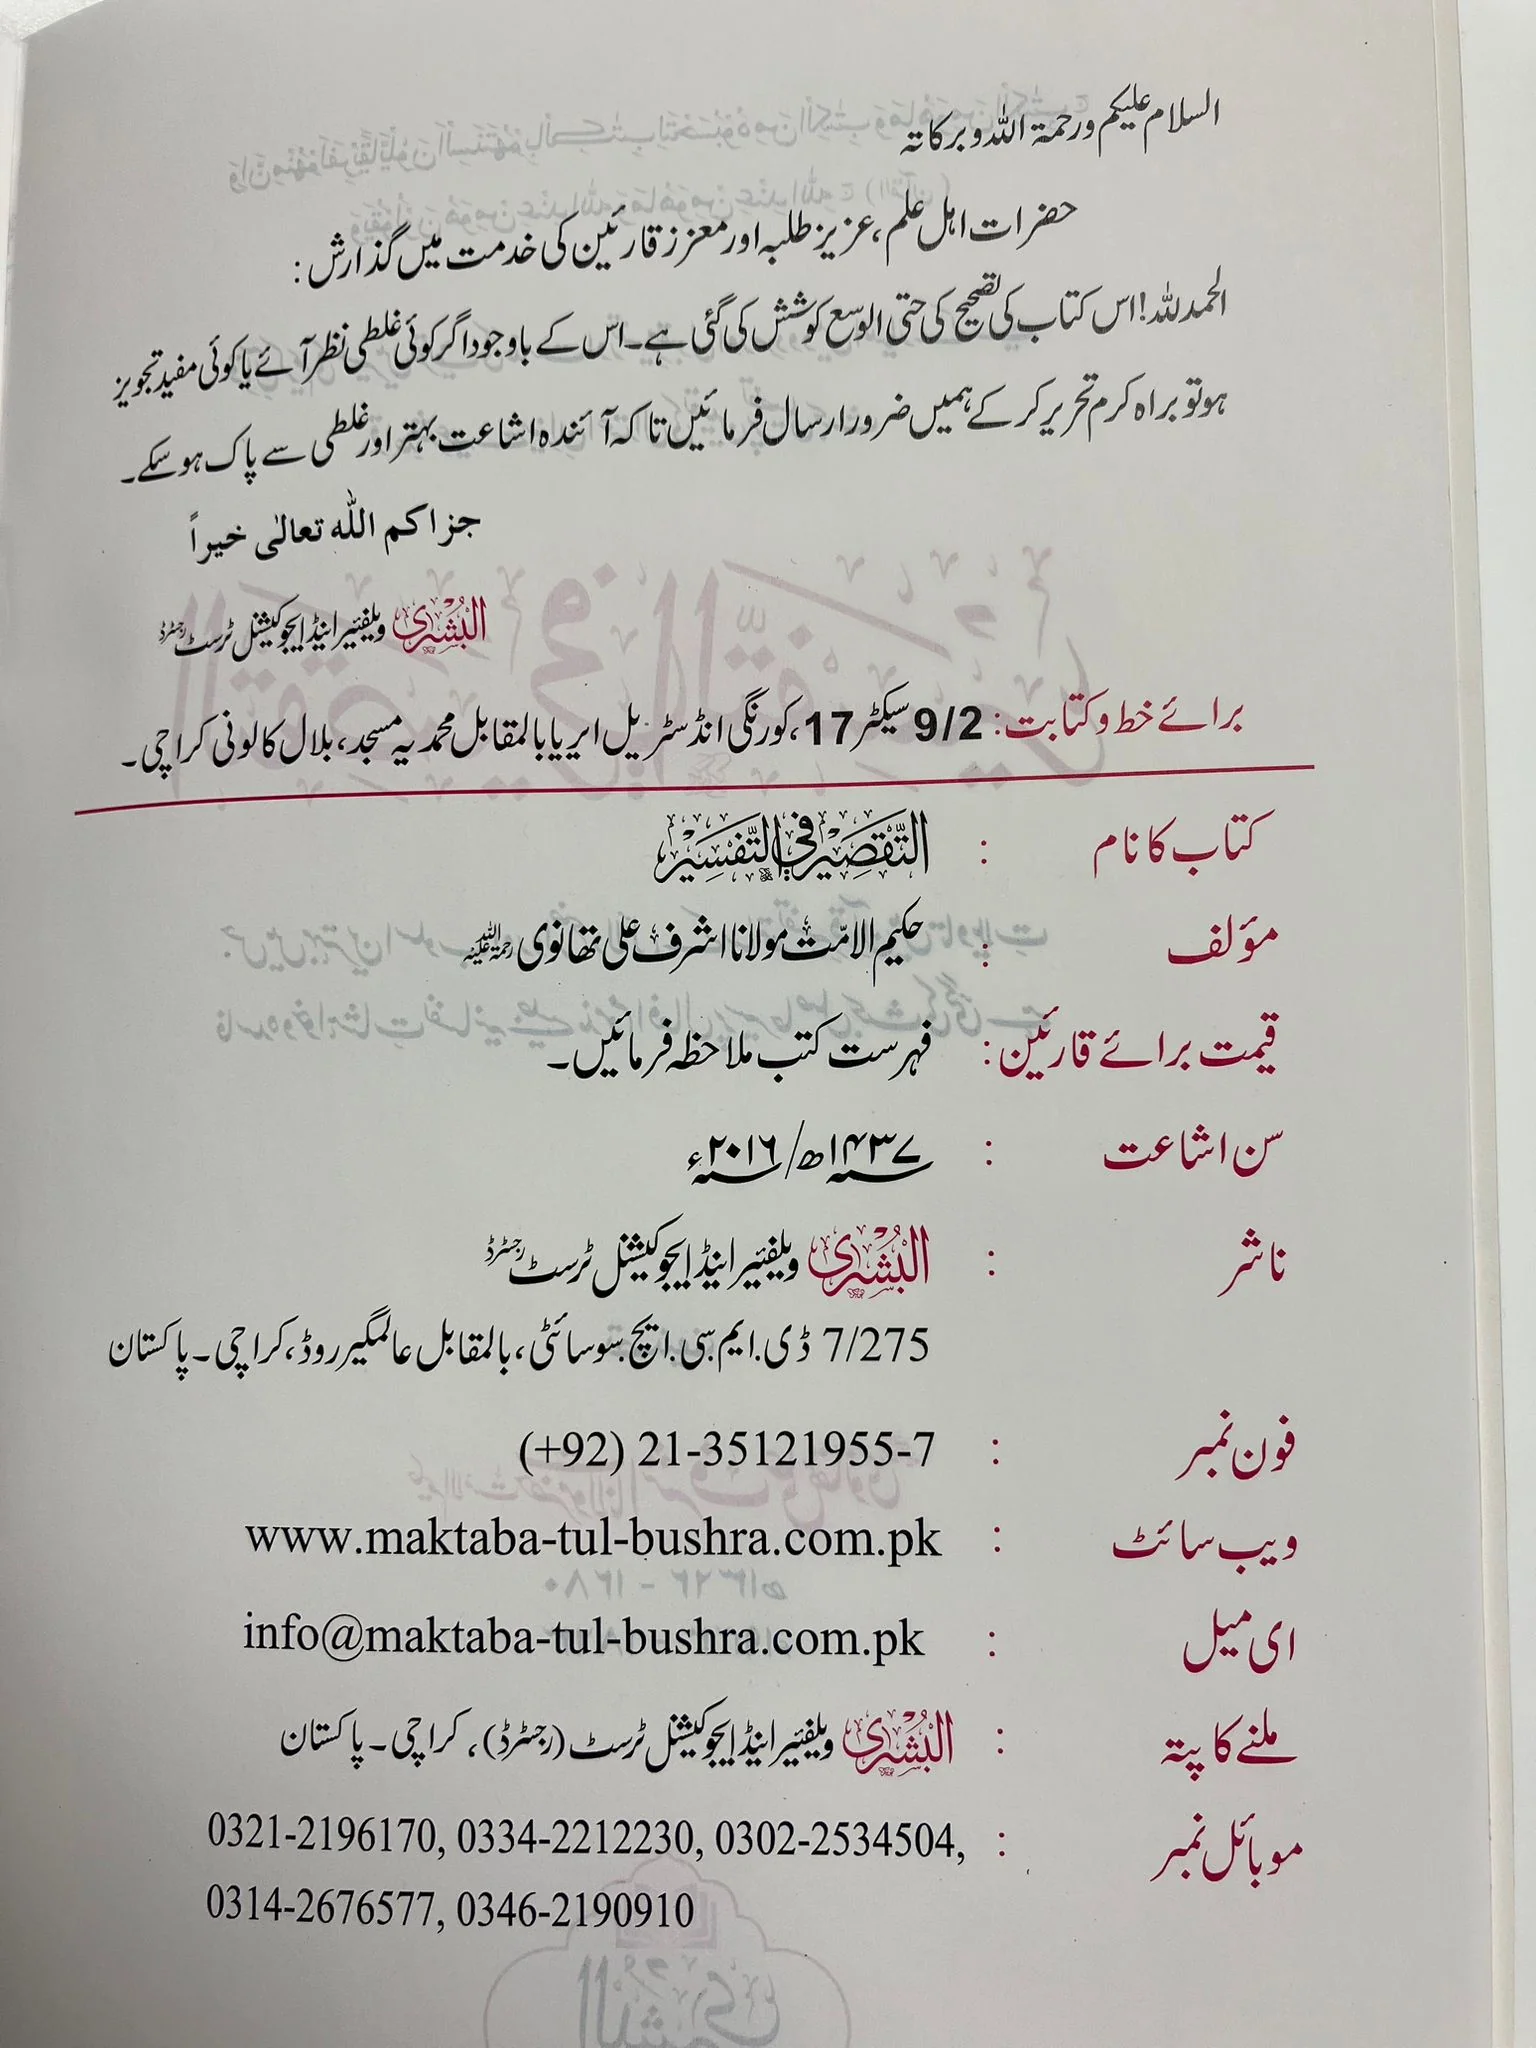 السلام علیکم ورحمۃ اللہ وبرکاتہ
حضرات اہل علم، عزیز طلبہ اور معزز قارئین کی خدمت میں گذارش:
الحمد للہ! اس کتاب کی تصحیح کی حتی الوسع کوشش کی گئی ہے۔ اس کے باوجود اگر کوئی غلطی نظر آئے یا کوئی مفید تجویز
ہو تو براہ کرم تحریر کر کے ہمیں ضرور ارسال فرمائیں تاکہ آئندہ اشاعت بہتر اور غلطی سے پاک ہو سکے۔
جزاکم اللہ تعالٰی خیراً
البُشریٰ ویلفئیر اینڈ ایجوکیشنل ٹرسٹ رجسٹرڈ
برائے خط و کتابت: 9/2 سیکٹر 17، کورنگی انڈسٹریل ایریا بالمقابل محمدیہ مسجد، بلال کالونی کراچی۔
کتاب کا نام : التَّقصِیر فِي التَّفسِیر
مؤلف : حکیم الامّت مولانا اشرف علی تھانوی رحمۃ اللہ علیہ
قیمت برائے قارئین: فہرست کتب ملاحظہ فرمائیں۔
سن اشاعت : ۱۴۳۷ھ/ ۲۰۱۶ء
ناشر : البُشریٰ ویلفئیر اینڈ ایجوکیشنل ٹرسٹ رجسٹرڈ
7/275 ڈی.ایم.سی.ایچ.سوسائٹی، بالمقابل عالمگیر روڈ، کراچی۔ پاکستان
فون نمبر : (+92) 21-35121955-7
ویب سائٹ : www.maktaba-tul-bushra.com.pk
ای میل : info@maktaba-tul-bushra.com.pk
ملنے کا پتہ : البُشریٰ ویلفئیر اینڈ ایجوکیشنل ٹرسٹ (رجسٹرڈ)، کراچی۔ پاکستان
موبائل نمبر : 0321-2196170, 0334-2212230, 0302-2534504,
0314-2676577, 0346-2190910